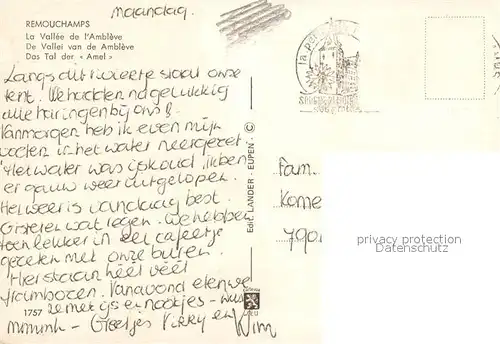 maandag.
REMOUCHAMPS
La Vallée de l'Amblève
De Vallei van de Amblève
Das Tal der « Amel »
Langs dit riviertje staat onze
tent. We hadden nogelukkig
alle haringen bij ons!
Vanmorgen heb ik even mijn
voeten in het water neergezet.
Het water was ijskoud, ik ben
er gauw weer uitgelopen.
Het weer is vandaag best.
Gisteren wat regen. We hebben
toen lekker in een cafeetje
gezeten met onze buren.
Hier staan héél véél
frambozen. Vanavond eten we
ze met ijs en nootjes - 
mmmh - Groetjes Vikky en Wim
1757
Edit. LANDER - EUPEN - ©
Fam.
Kome
790
privacy protection
samples